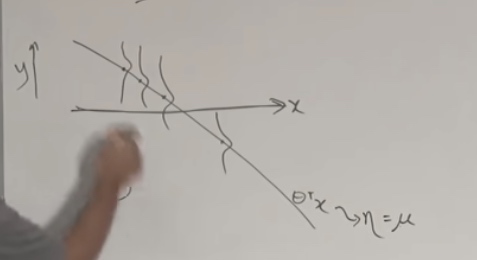 y
x
θᵀx ⤳ η = μ